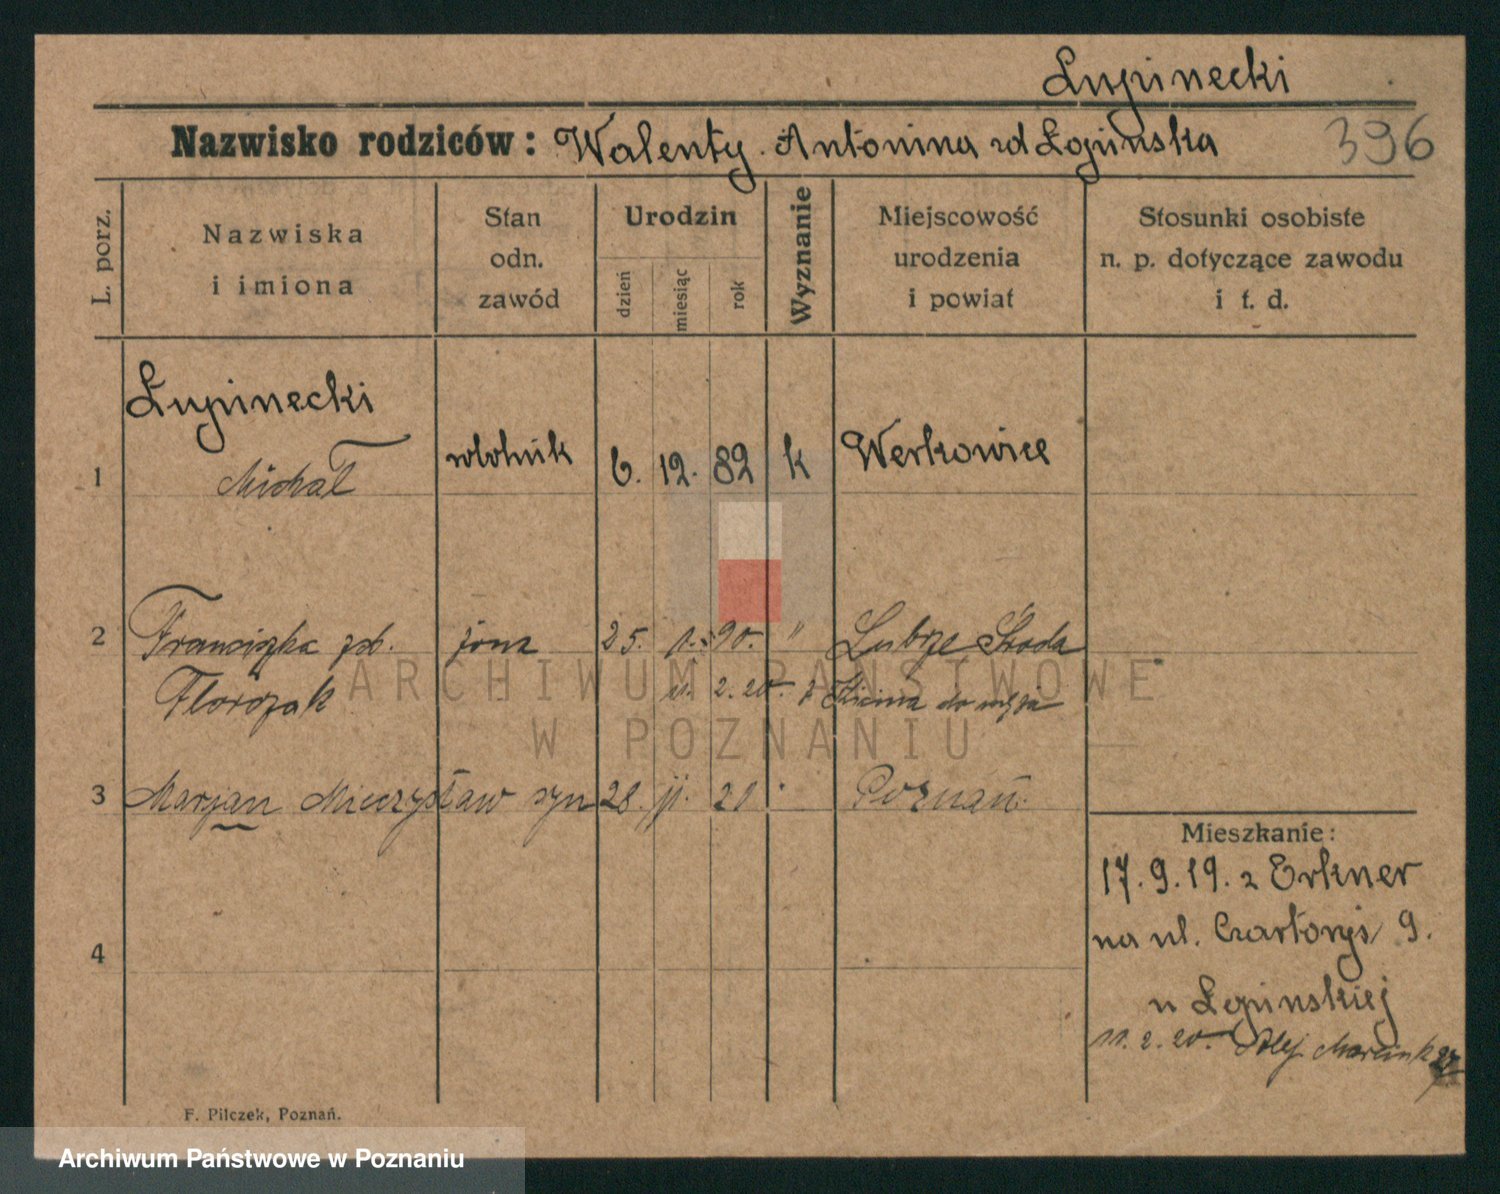 Łupinecki
Nazwisko rodziców: Walenty. Antonina rd Łopińska 396
L. porz.
Nazwiska i imiona
Stan odn. zawód
Urodzin
dzień
miesiąc
rok
Wyznanie
Miejscowość urodzenia i powiat
Stosunki osobiste n. p. dotyczące zawodu i t. d.
Łupinecki
1 Michał robotnik 6. 12. 82 k Werkowice
2 Franciszka zd. żona 25. 1. 90. " Lubrze Środa
Florczak 11. 2. 20. z do męża
3 Marjan Mieczysław syn 28. 11. 21 Poznań.
4
Mieszkanie:
17.9.19. z Erkner
na ul. Czartorys 9.
u Łopinskiej
11. 2. 20. Alej Marcink 27
F. Pilczek, Poznań.
ARCHIWUM PAŃSTWOWE
W POZNANIU
Archiwum Państwowe w Poznaniu